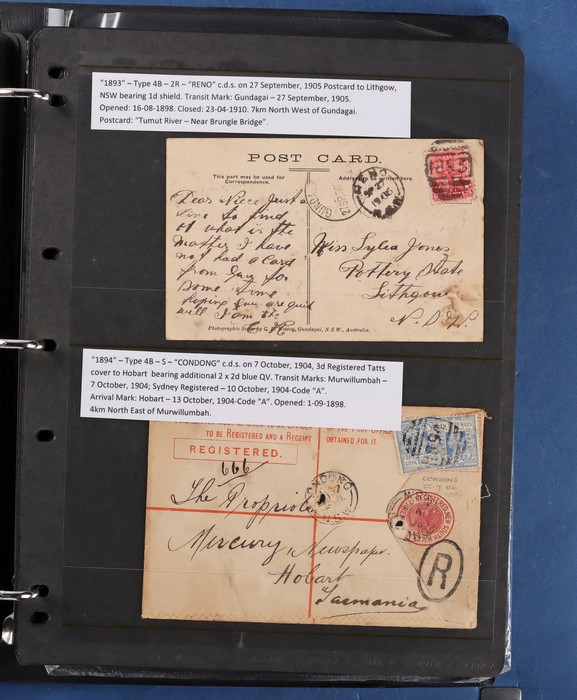 "1893" – Type 4B – 2R – "RENO" c.d.s. on 27 September, 1905 Postcard to Lithgow,
NSW bearing 1d shield. Transit Mark: Gundagai – 27 September, 1905.
Opened: 16-08-1898. Closed: 23-04-1910. 7km North West of Gundagai.
Postcard: "Tumut River – Near Brungle Bridge".
POST CARD.
This part may be used for
Correspondence.
Address to written here.
RENO
SP 27
1905
GUNDA
Dear Niece Just a
line to find
out what is the
matter I have
not had a card
from you for
some time
hoping you are quit
well I am the
Miss Sylea Jones
Pottery Estate
Lithgow
N.S.W.
Photographic Series by C. Gundagai, N.S.W., Australia.
"1894" – Type 4B – S – "CONDONG" c.d.s. on 7 October, 1904, 3d Registered Tatts
cover to Hobart bearing additional 2 x 2d blue QV. Transit Marks: Murwillumbah –
7 October, 1904; Sydney Registered – 10 October, 1904-Code "A".
Arrival Mark: Hobart – 13 October, 1904-Code "A". Opened: 1-09-1898.
4km North East of Murwillumbah.
TO BE REGISTERED AND A RECEIPT
OBTAINED FOR IT.
REGISTERED.
666
CONDONG
OC 7 04
The Propriote
Mercury Newspaper.
Hobart
Tasmania
R